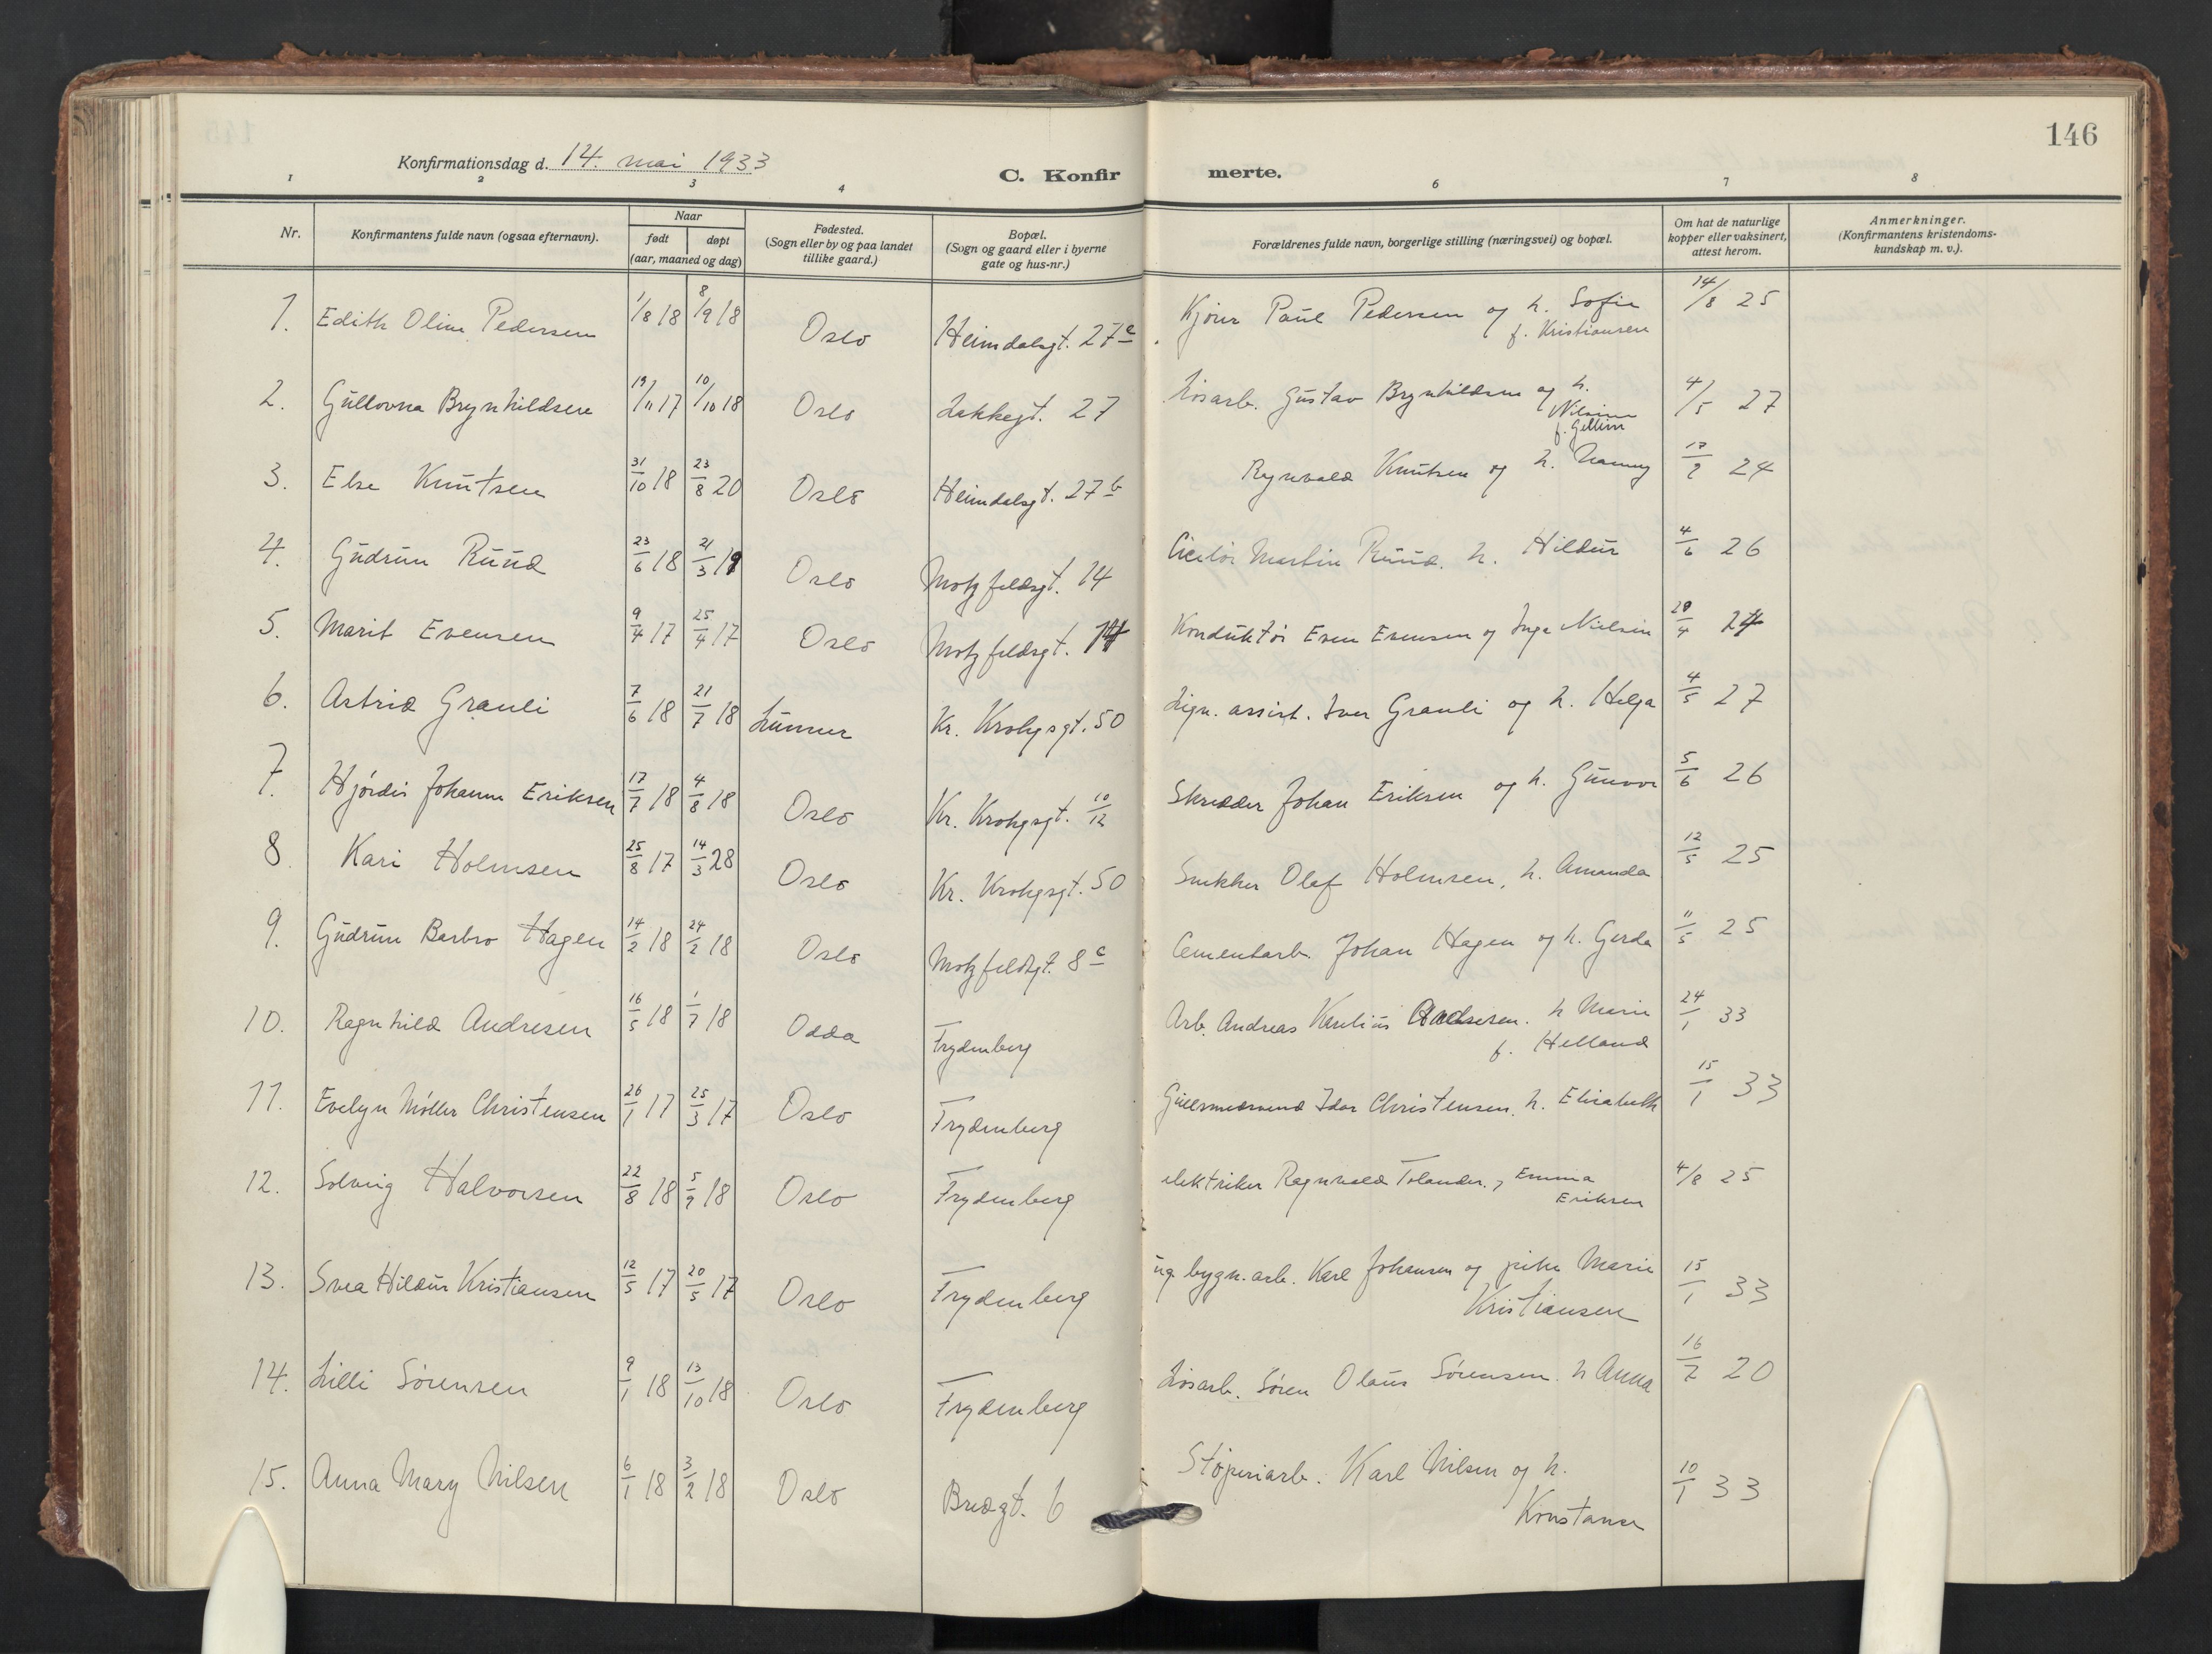 146
Konfirmationsdag d. 14. mai 1933
C. Konfirmerte.
1 2 3 4 6 7 8
Nr. Konfirmantens fulde navn (ogsaa efternavn). Naar født døpt (aar, maaned og dag) Fødested. (Sogn eller by og paa landet tillike gaard.) Bopæl. (Sogn og gaard eller i byerne gate og hus-nr.) Forældrenes fulde navn, borgerlige stilling (næringsvei) og bopæl. Om hat de naturlige kopper eller vaksinert, attest herom. Anmerkninger. (Konfirmantens kristendoms-kundskap m. v.).
1. Edith Oline Pedersen 1/8 18 8/9 18 Oslo Heimdalsgt. 27c Kjører Paul Pedersen og h. Sofie f. Kristiansen 14/8 25
2. Gullovna Brynhildsen 19/11 17 10/10 18 Oslo Lakkegt. 27 Løsarb. Gustav Brynhildsen og h. f. Gellin 4/5 27
3. Else Knutsen 31/10 18 23/8 20 Oslo Heimdalsgt. 27b Ragnvald Knutsen og h. Nanny 24
4. Gudrun Ruud 23/6 18 21/3 19 Oslo Motzfeldsgt. 14 Martin Ruud. h. Hildur 4/6 26
5. Marit Evensen 9/4 17 25/4 17 Oslo Motzfeldsgt. 14 Konduktør Even Evensen og Inga Nielsen 24
6. Astrid Grauli 7/6 18 21/7 18 Lunner Kr. Krohgsgt. 50 Lign. assist. Iver Grauli og h. Helga 4/5 27
7. Hjørdis Johanne Eriksen 17/7 18 4/8 18 Oslo Kr. Krohgsgt. 10/12 Skredder Johan Eriksen og h. Gunvor 5/6 26
8. Kari Holmsen 25/8 17 14/3 28 Oslo Kr. Krohgsgt. 50 Snekker Olaf Holmsen, h. Amanda 12/5 25
9. Gudrun Barbro Hagen 14/2 18 24/2 18 Oslo Motzfeldtgt. 8c Cementarb. Johan Hagen og h. Gerda 11/5 25
10. Ragnhild Andresen 16/5 18 1/7 18 Odda Frydenberg Arb. Andreas Karelius Andresen. h Marie f. Helland 24/1 33
11. Evelyn Møller Christensen 26/1 17 25/3 17 Oslo Frydenberg Gullsmedsvend Idar Christensen, h. Elisabeth 15/1 33
12. Solveig Halvorsen 22/8 18 5/9 18 Oslo Frydenberg elektriker Ragnvald Tolander, Emma Eriksen 4/8 25
13. Svea Hildur Kristiansen 12/5 17 20/5 17 Oslo Frydenberg ug. bygn. arb. Karl Johansen og pike Marie Kristiansen 15/1 33
14. Lilli Sørensen 9/1 18 13/10 18 Oslo Frydenberg Løsarb. Søren Olaus Sørensen. h Anna 16/7 20
15. Anna Mary Nilsen 6/1 18 3/2 18 Oslo Bredgt. 6 Støperiarb. Karl Nilsen og h. Konstanse 10/1 33